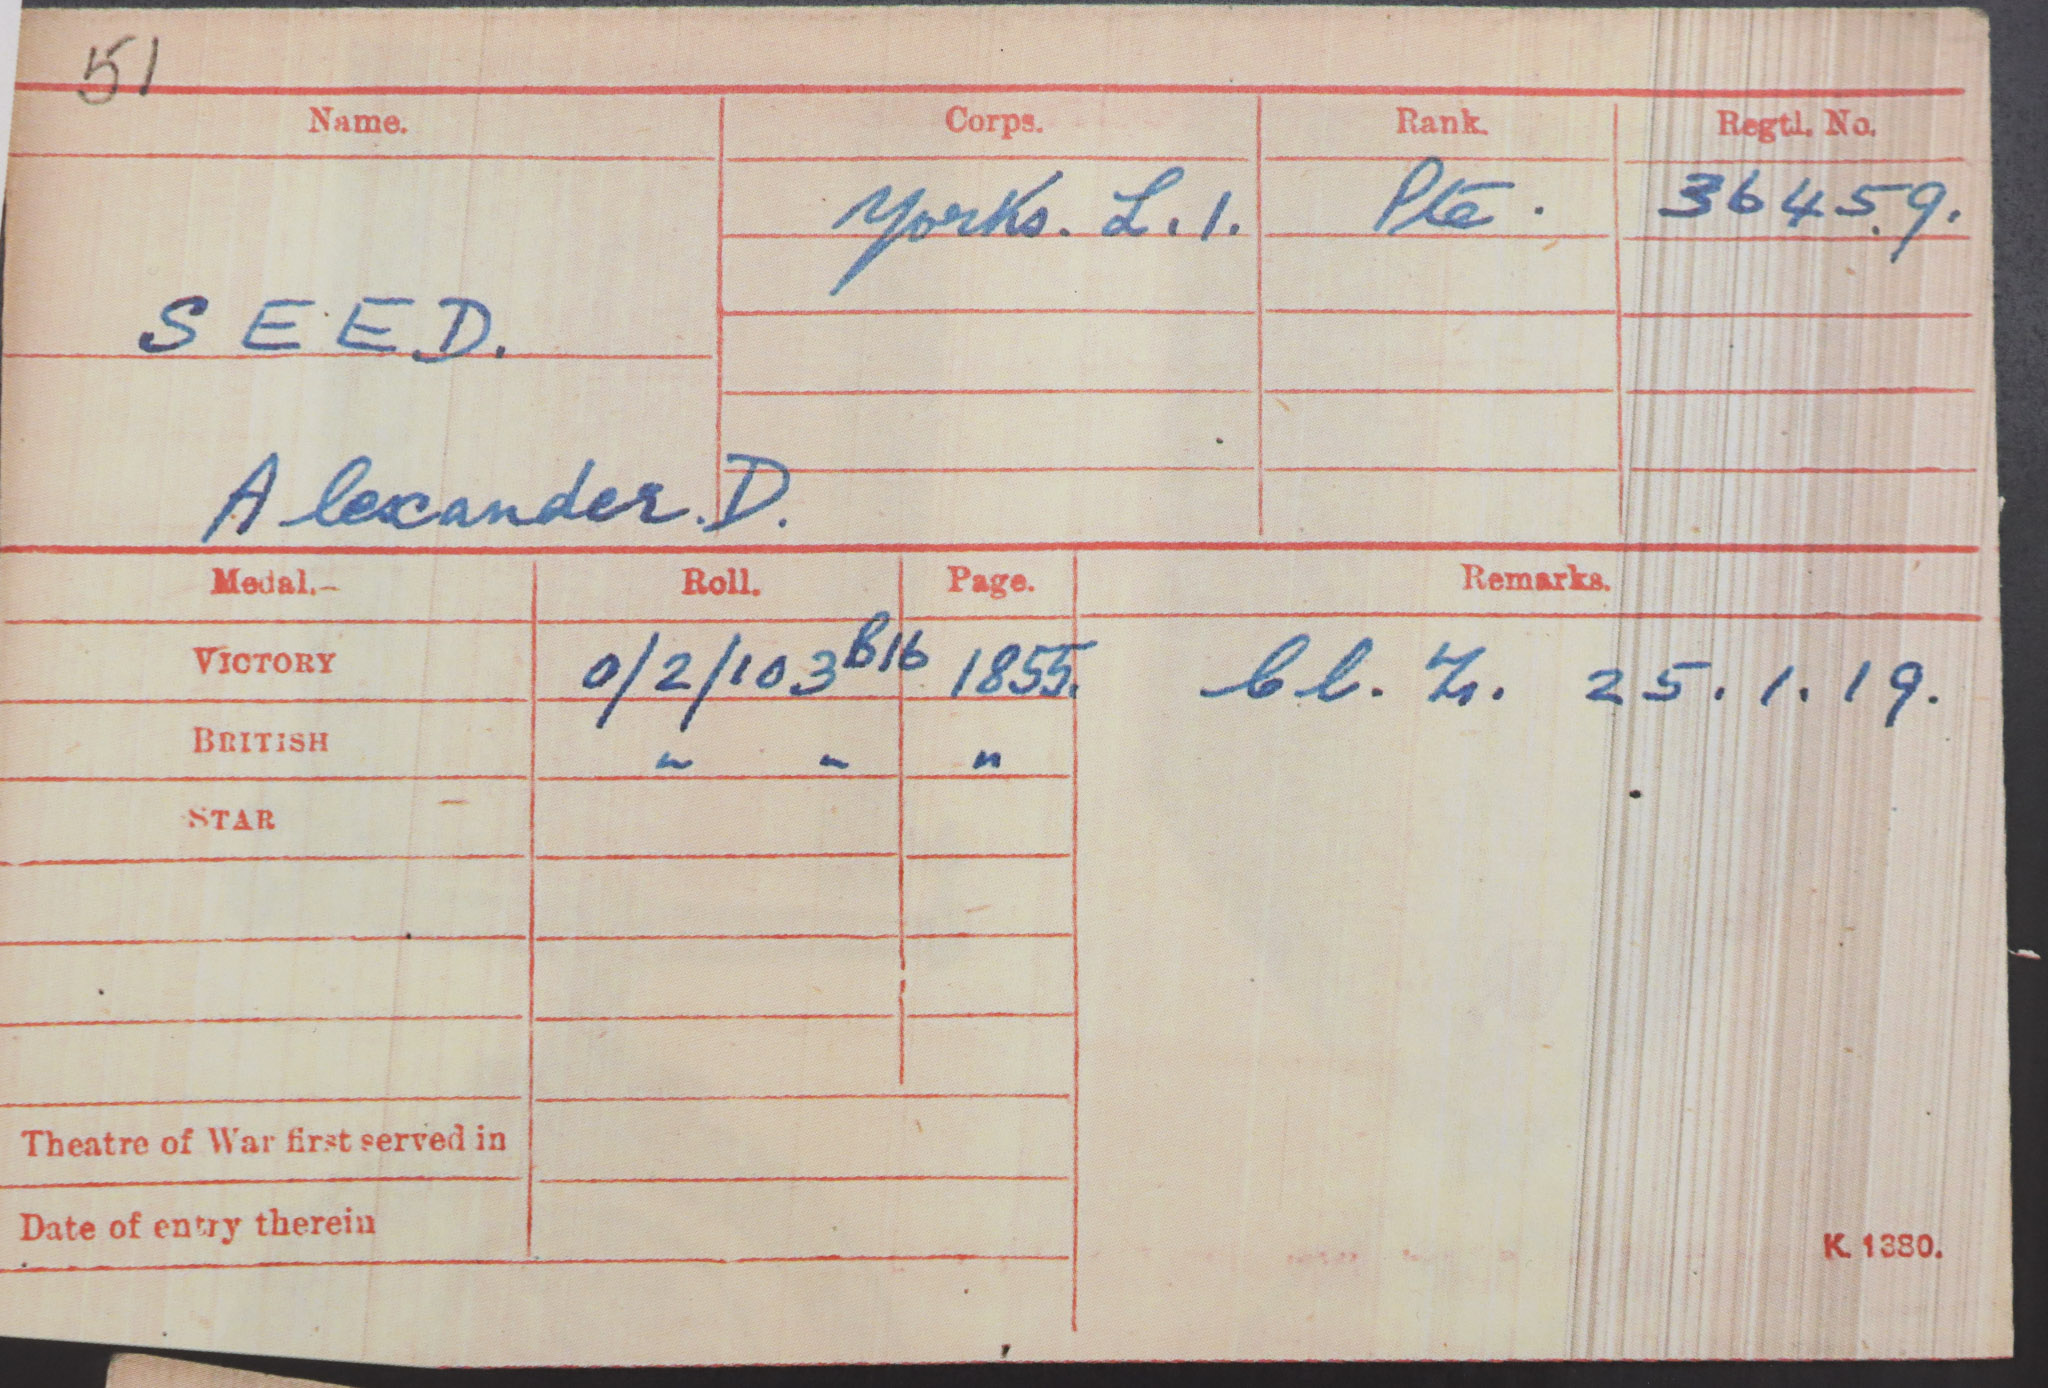 51
Name. Corps. Rank. Regtl. No.
Yorks. L.I. Pte. 36459.
SEED.
Alexander. D.
Medal.- Roll. Page. Remarks.
VICTORY 0/2/103 B16 1855. Cl. Z. 25.1.19.
BRITISH " " "
STAR
Theatre of War first served in
Date of entry therein
K. 1380.